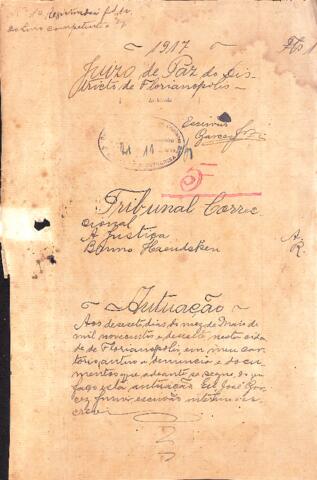 1917
Fls 1
Juizo de Paz do Dis-
tricto de Florianopolis
Escrivão
Garcez
21 11
Tribunal Correc-
cional
A Justiça A.
Bruno Haendchen R.
Autuação
Aos dezesete dias do mez de Maio de
mil novecentos e dezesete nesta cida-
de de Florianopolis em meu car-
torio, autuo a denuncia e docu-
mentos que adeante se segue, do que
faço esta autuação. Eu, José Gar-
cez, escrivão interino es-
crevi